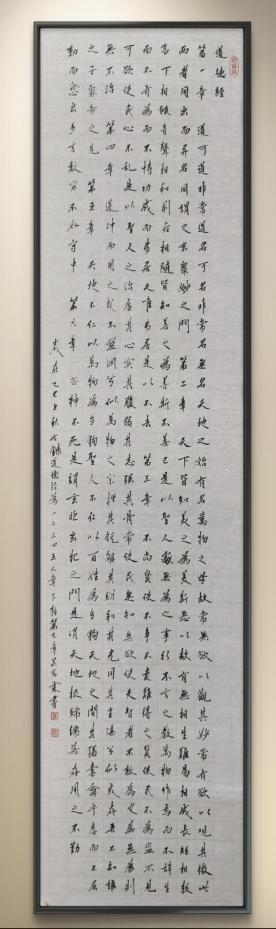 道德經
第一章 道可道非常道名可名非常名無名天地之始有名萬物之母故常無欲以觀其妙常有欲以觀其徼此
兩者同出而異名同謂之玄衆妙之門 第二章 天下皆知美之為美斯惡以故有無相生難易相成長短相較
高下相傾音聲相和前后相隨皆知善之為善斯不善已是以聖人處無為之事行不言之教萬物作焉而不辭生
而不有為而不恃功成而弗居夫唯弗居是以不去 第三章 不尚賢使不爭不貴難得之貨使民不為盜不見
可欲使民心不亂是以聖人之治虛其心實其腹弱其志強其骨常使民無知無欲使夫智者不敢為也為無為則
無不治 第四章 道沖而用之或不盈淵兮似萬物之宗挫其銳解其紛和其光同其塵湛兮似或存吾不知誰
之子象帝之先 第五章 天地不仁以萬物為芻狗聖人不仁以百姓為芻狗天地之間其猶橐龠乎虛而不屈
動而愈出多言數窮不如守中 第六章 谷神不死是謂玄牝玄牝之門是謂天地根綿綿若存用之不勤
歲在乙巳秋錄道德經一二三四五六章書